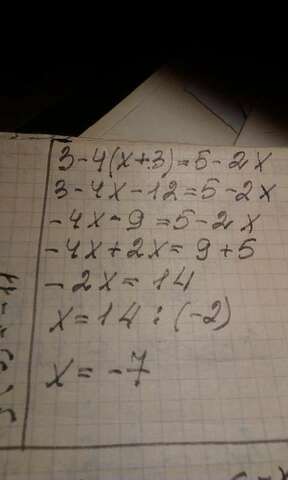 3-4(x+3)=5-2x
3-4x-12=5-2x
-4x-9=5-2x
-4x+2x=9+5
-2x=14
x=14:(-2)
x=-7